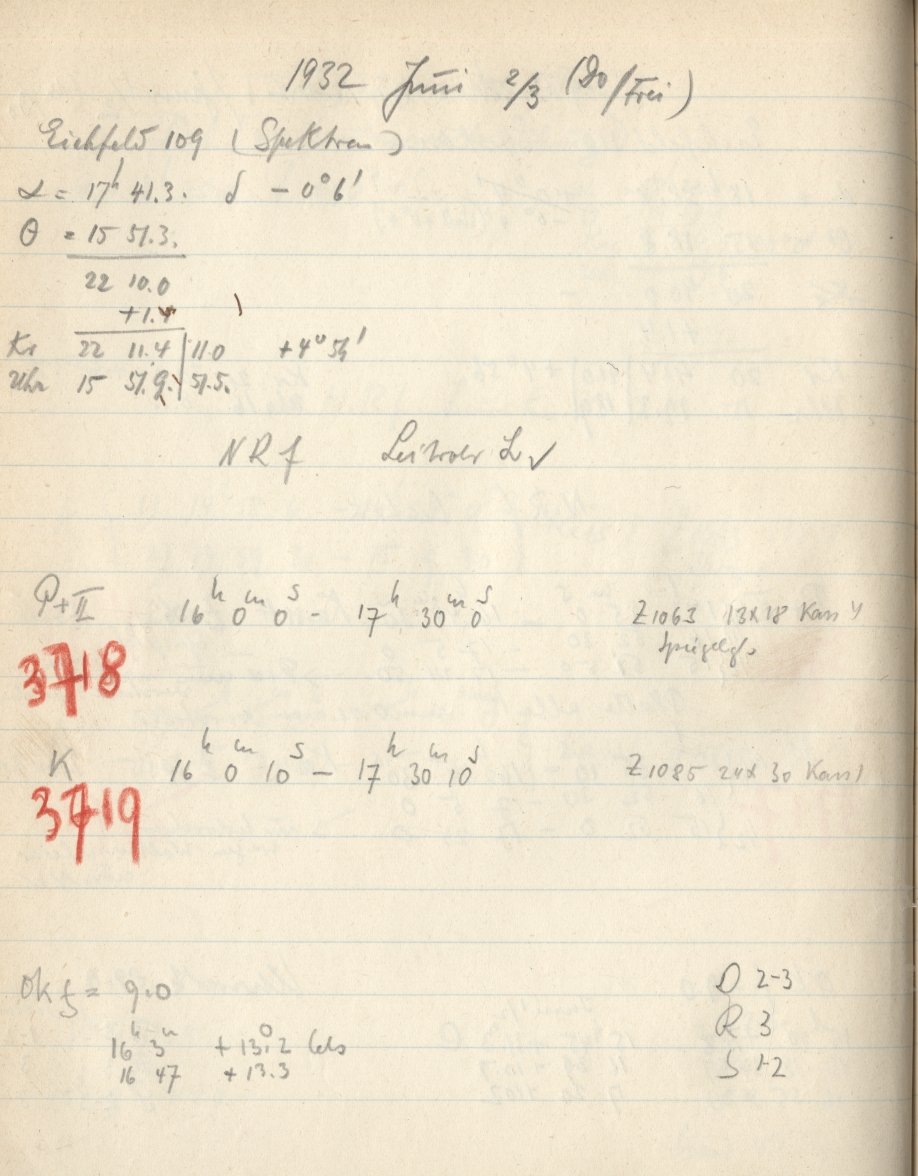 1932 Juni 2/3 (Do/Frei)
Eichfeld 109 (Spektren)
α = 17h 41.3. δ - 0° 6'
θ = 15 51.3.
22 10.0
+1.4
Kr 22 11.4 | 11.0 +4° 54'
Uhr 15 51.9. | 51.5.
NRf L
P+II 16h 0m 0s - 17h 30m 0s Z1063 13x18 Kass 4
Spiegelgl.
3718
K 16h 0m 10s - 17h 30m 10s Z1085 24x30 Kass 1
3719
Okf = 9.0 D 2-3
16h 3m +13.°2 Cels R 3
16 47 +13.3 S 1-2